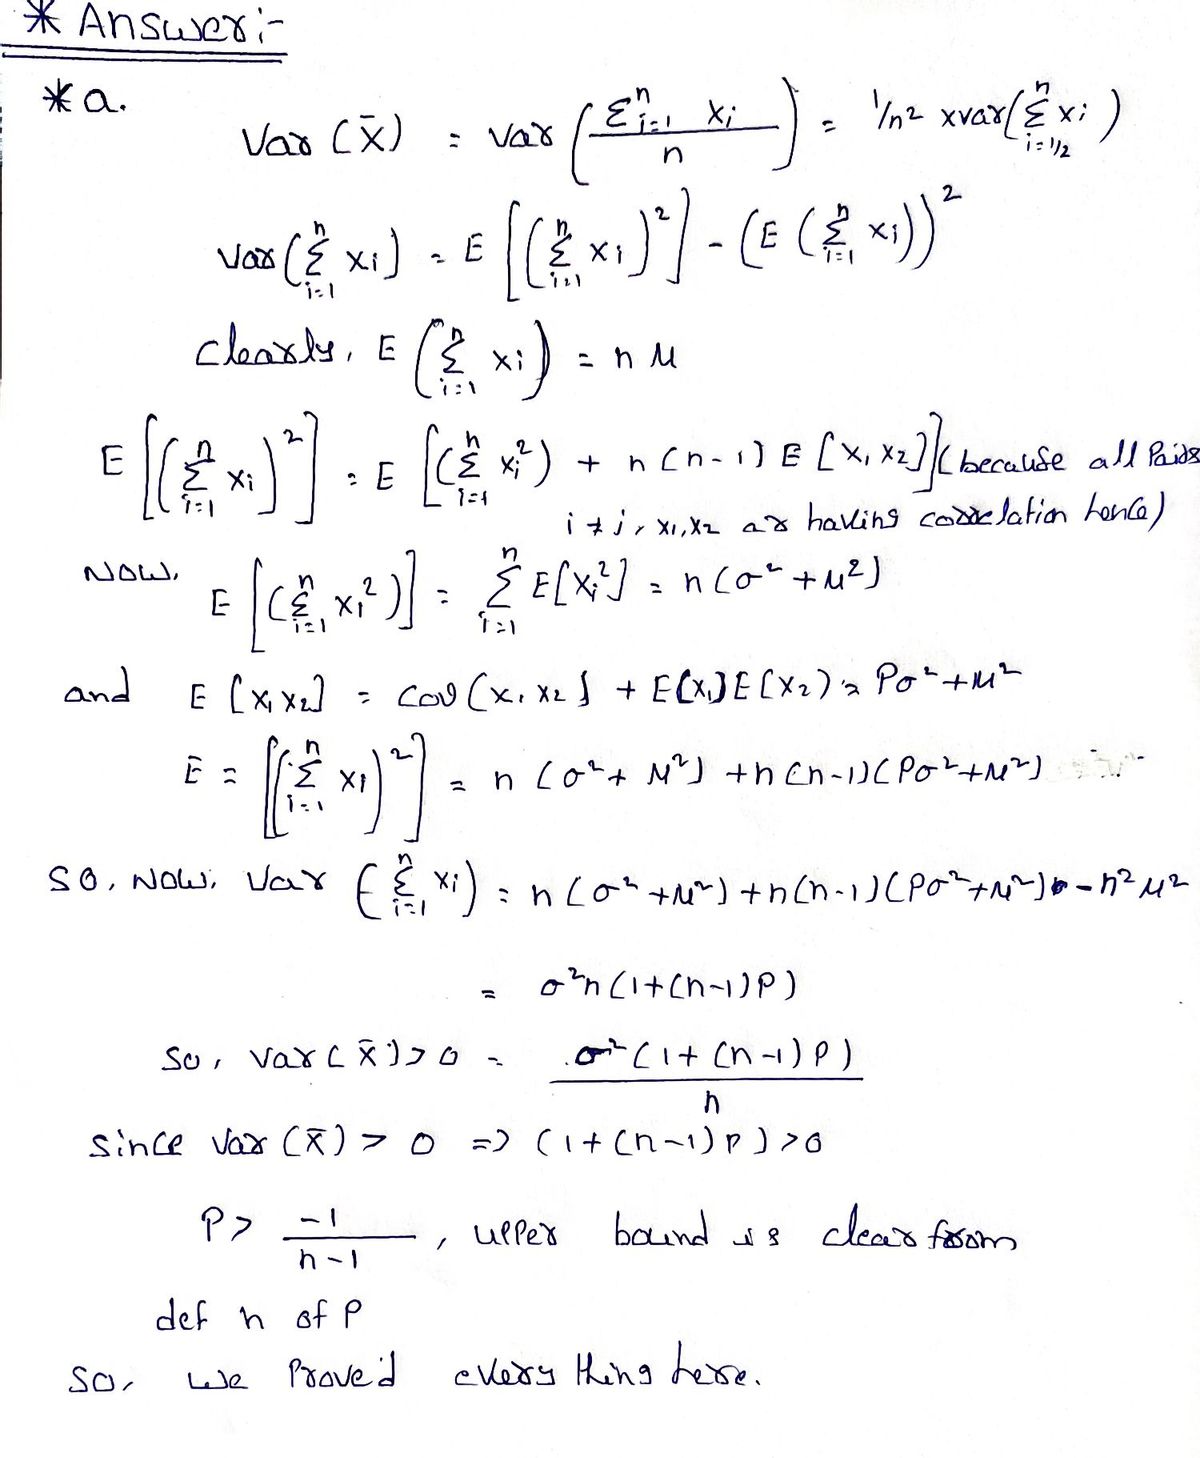 * Answer:-
* a.
Var (X̄) = var (Σⁿᵢ₌₁ xᵢ / n) = 1/n² x var(Σⁿᵢ₌₁/₂ xᵢ)
var(Σⁿᵢ₌₁ xᵢ) = E [(Σⁿᵢ₌₁ xᵢ)²] - (E (Σⁿᵢ₌₁ xᵢ))²
clearly, E (Σⁿᵢ₌₁ xᵢ) = n μ
E [(Σⁿᵢ₌₁ xᵢ)²] = E [(Σⁿᵢ₌₁ xᵢ²) + n(n-1) E [x₁ x₂]] (because all Pairs
i ≠ j, x₁, x₂ are having correlation hence)
NOW, E [(Σⁿᵢ₌₁ xᵢ²)] = Σⁿᵢ₌₁ E[xᵢ²] = n(σ² + μ²)
and E [x₁ x₂] = cov (x₁ x₂) + E[x₁] E[x₂] = Pσ² + μ²
E = [(Σⁿᵢ₌₁ xᵢ)²] = n (σ² + μ²) + n(n-1)(Pσ² + μ²)
SO, NOW, Var (Σⁿᵢ₌₁ xᵢ) = n(σ² + μ²) + n(n-1)(Pσ² + μ²) - n² μ²
= σ²n(1+(n-1)P)
So, var(x̄) > 0 = σ²(1+(n-1)P) / n
since var(x̄) > 0 => (1+(n-1)P) > 0
P > -1 / n-1, upper bound is clear from
def n of P
So, we Prove'd every thing here.